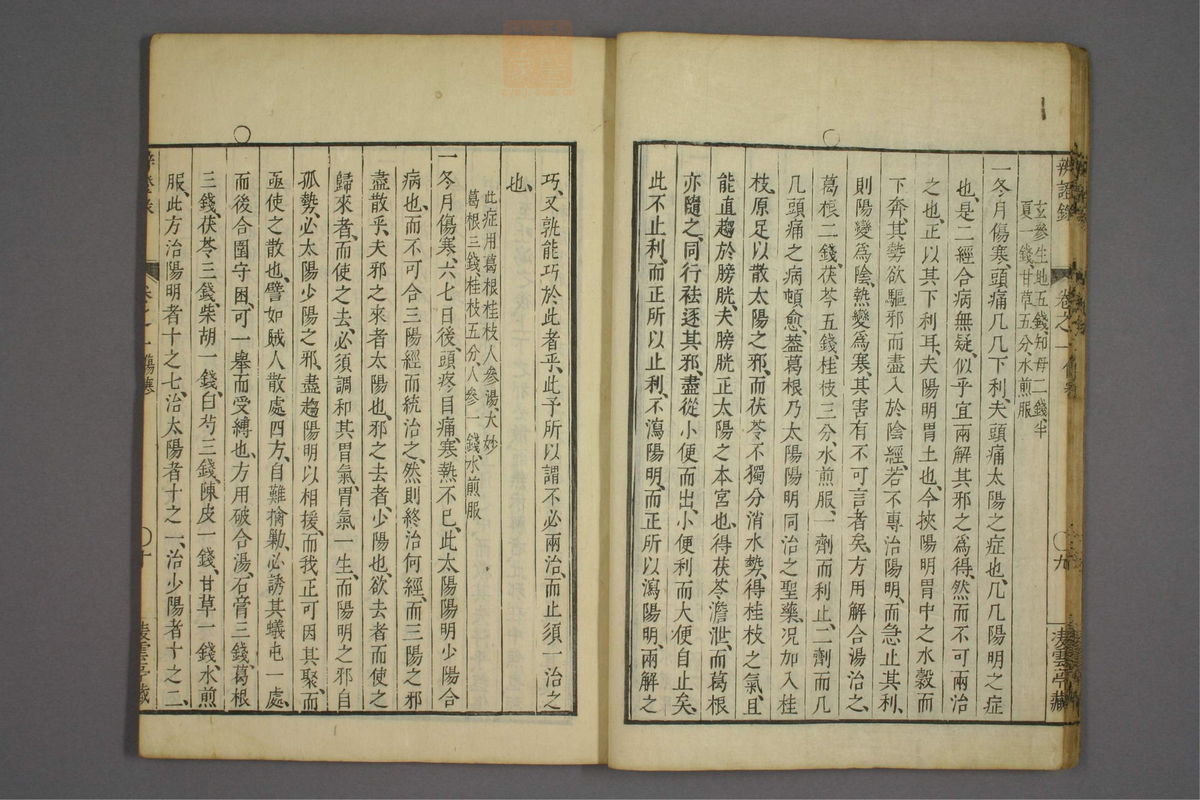 辨證錄 卷之一 傷寒 九 凌雲亭藏
玄參生地五錢、知母二錢、半
夏一錢、甘草五分、水煎服
一冬月傷寒、頭痛几几下利、夫頭痛太陽之症也、几几陽明之症
也、是二經合病無疑、似乎宜兩解其邪之爲得、然而不可兩治
之也、正以其下利耳、夫陽明胃土也、今挾陽明胃中之水穀而
下奔、其勢欲驅邪而盡入於陰經、若不專治陽明、而急止其利、
則陽變爲陰、熱變爲寒、其害有不可言者矣、方用解合湯治之、
葛根二錢、茯苓五錢、桂枝三分、水煎服、一劑而利止、二劑而几
几頭痛之病頓愈、葢葛根乃太陽陽明同治之聖藥、况加入桂
枝、原足以散太陽之邪、而茯苓不獨分消水勢、得桂枝之氣、且
能直趨於膀胱、夫膀胱正太陽之本宮也、得茯苓澹泄、而葛根
亦隨之、同行祛逐其邪、盡從小便而出、小便利而大便自止矣、
此不止利、而正所以止利、不瀉陽明、而正所以瀉陽明、兩解之
巧、又孰能巧於此者乎、此予所以謂不必兩治、而止須一治之
也、
此症用葛根桂枝人參湯、大妙
葛根三錢、桂枝五分、人參一錢、水煎服
一冬月傷寒、六七日後、頭疼目痛、寒熱不已、此太陽陽明少陽合
病也、而不可合三陽經而統治之、然則終治何經、而三陽之邪
盡散乎、夫邪之來者太陽也、邪之去者、少陽也、欲去者而使之
歸來者、而使之去、必須調和其胃氣、胃氣一生、而陽明之邪自
孤、勢必太陽少陽之邪、盡趨陽明以相援、而我正可因其聚、而
亟使之散也、譬如賊人散處四方、自難擒勦、必誘其蟻屯一處、
而後合圍守困、可一舉而受縛也、方用破合湯、石膏三錢、葛根
三錢、茯苓三錢、柴胡一錢、白芍三錢、陳皮一錢、甘草一錢、水煎
服、此方治陽明者十之七、治太陽者十之一、治少陽者十之二、
卷之一 傷寒 十 凌雲亭藏